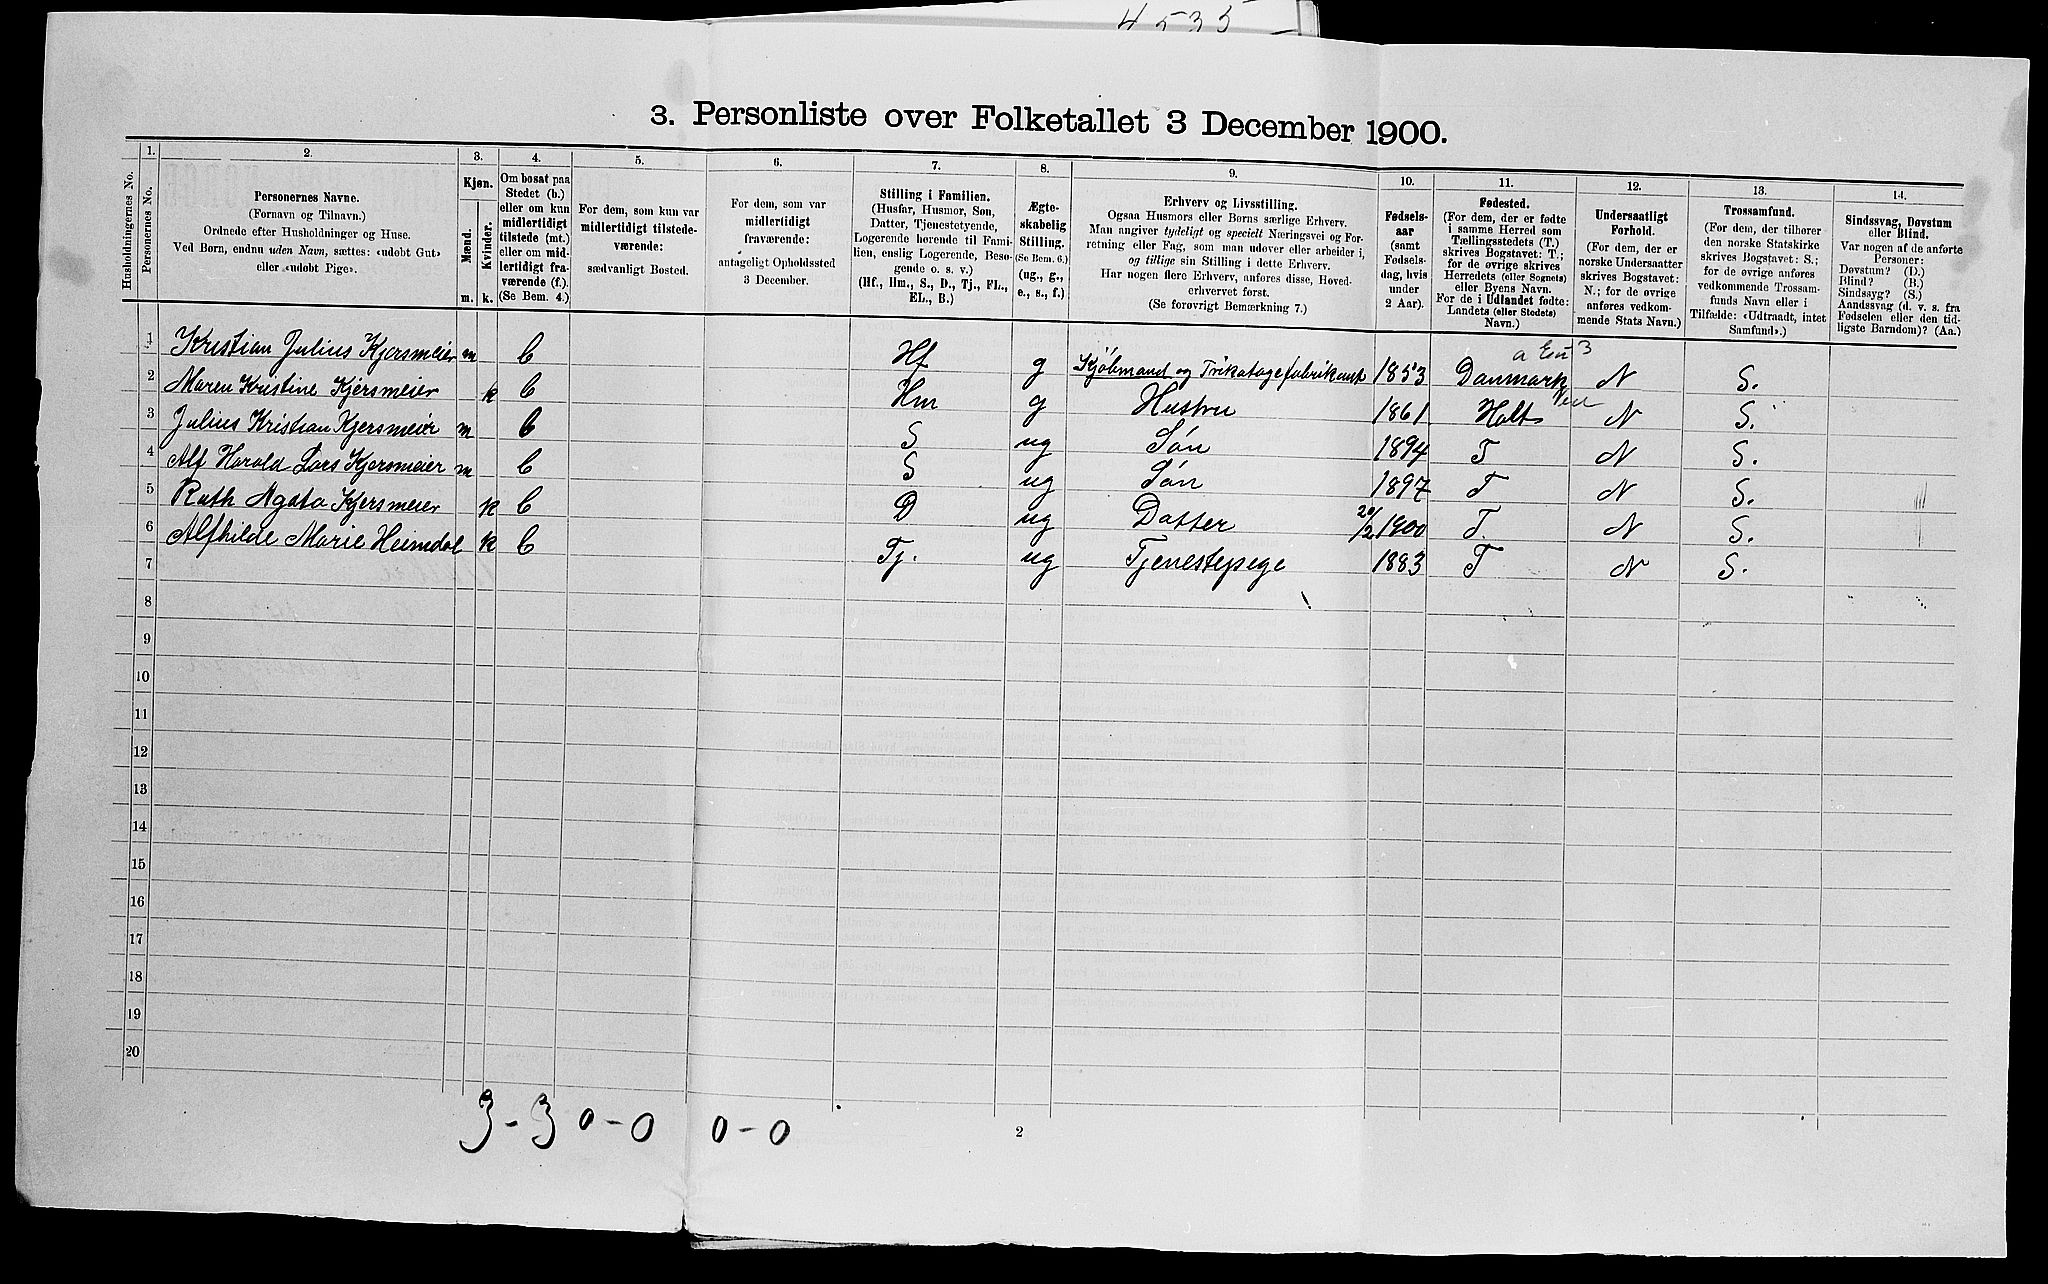 4535
3. Personliste over Folketallet 3 December 1900.
Husholdningernes No.
1.
Personernes No.
2.
Personernes Navne.
(Fornavn og Tilnavn.)
Ordnede efter Husholdninger og Huse.
Ved Børn, endnu uden Navn, sættes: «udøbt Gut»
eller «udøbt Pige».
3.
Kjøn.
Mænd.
Kvinder.
m.
k.
4.
Om bosat paa
Stedet (b.)
eller om kun
midlertidigt
tilstede (mt.)
eller om mid-
lertidigt fra-
værende (f.).
(Se Bem. 4.)
5.
For dem, som kun var
midlertidigt tilstede-
værende:
sædvanligt Bosted.
6.
For dem, som var
midlertidigt
fraværende:
antageligt Opholdssted
3 December.
7.
Stilling i Familien.
(Husfar, Husmor, Søn,
Datter, Tjenestetyende,
Logerende hørende til Fami-
lien, enslig Logerende, Besø-
gende o. s. v.)
(Hf., Hm., S., D., Tj., FL.,
EL., B.)
8.
Ægte-
skabelig
Stilling.
(Se Bem. 6.)
(ug., g.,
e., s., f.)
9.
Erhverv og Livsstilling.
Ogsaa Husmors eller Børns særlige Erhverv.
Man angiver tydeligt og specielt Næringsvei og For-
retning eller Fag, som man udøver eller arbeider i,
og tillige sin Stilling i dette Erhverv.
Har nogen flere Erhverv, anføres disse, Hoved-
erhvervet først.
(Se forøvrigt Bemærkning 7.)
10.
Fødsels-
aar
(samt
Fødsels-
dag, hvis
under
2 Aar).
11.
Fødested.
(For dem, der er fødte
i samme Herred som
Tællingsstedets (T.)
skrives Bogstavet: T.;
for de øvrige skrives
Herredets (eller Sognets)
eller Byens Navn.
For de i Udlandet fødte:
Landets (eller Stedets)
Navn.)
12.
Undersaatligt
Forhold.
(For dem, der er
norske Undersaatter
skrives Bogstavet:
N.; for de øvrige
anføres vedkom-
mende Stats Navn.)
13.
Trossamfund.
(For dem, der tilhører
den norske Statskirke
skrives Bogstavet: S.;
for de øvrige anføres
vedkommende Trossam-
funds Navn eller i
Tilfælde: «Udtraadt, intet
Samfund».)
14.
Sindssvag, Døvstum
eller Blind.
Var nogen af de anførte
Personer:
Døvstum? (D.)
Blind? (B.)
Sindssyg? (S.)
Aandssvag (d. v. s. fra
Fødselen eller den tid-
ligste Barndom)? (Aa.)
1 Kristian Julius Kjersmeier m b Hf g Kjöbmand og Trikotagefabrikant 1853 Danmark N S.
2 Maren Kristine Kjersmeier k b Hm g Hustru 1861 Holt N S.
3 Julius Kristian Kjersmeier m b S ug Sön 1894 T N S.
4 Alf Harald Lars Kjersmeier m b S ug Sön 1897 T N S.
5 Ruth Agata Kjersmeier k b D ug Datter 20/2 1900 T. N S.
6 Alfhilde Marie Heimdal k b Tj. ug Tjenestepige 1883 T N S.
7
8
9
10
11
12
13
14
15
16
17
18
19
20
3 - 3 0 - 0 0 - 0
2